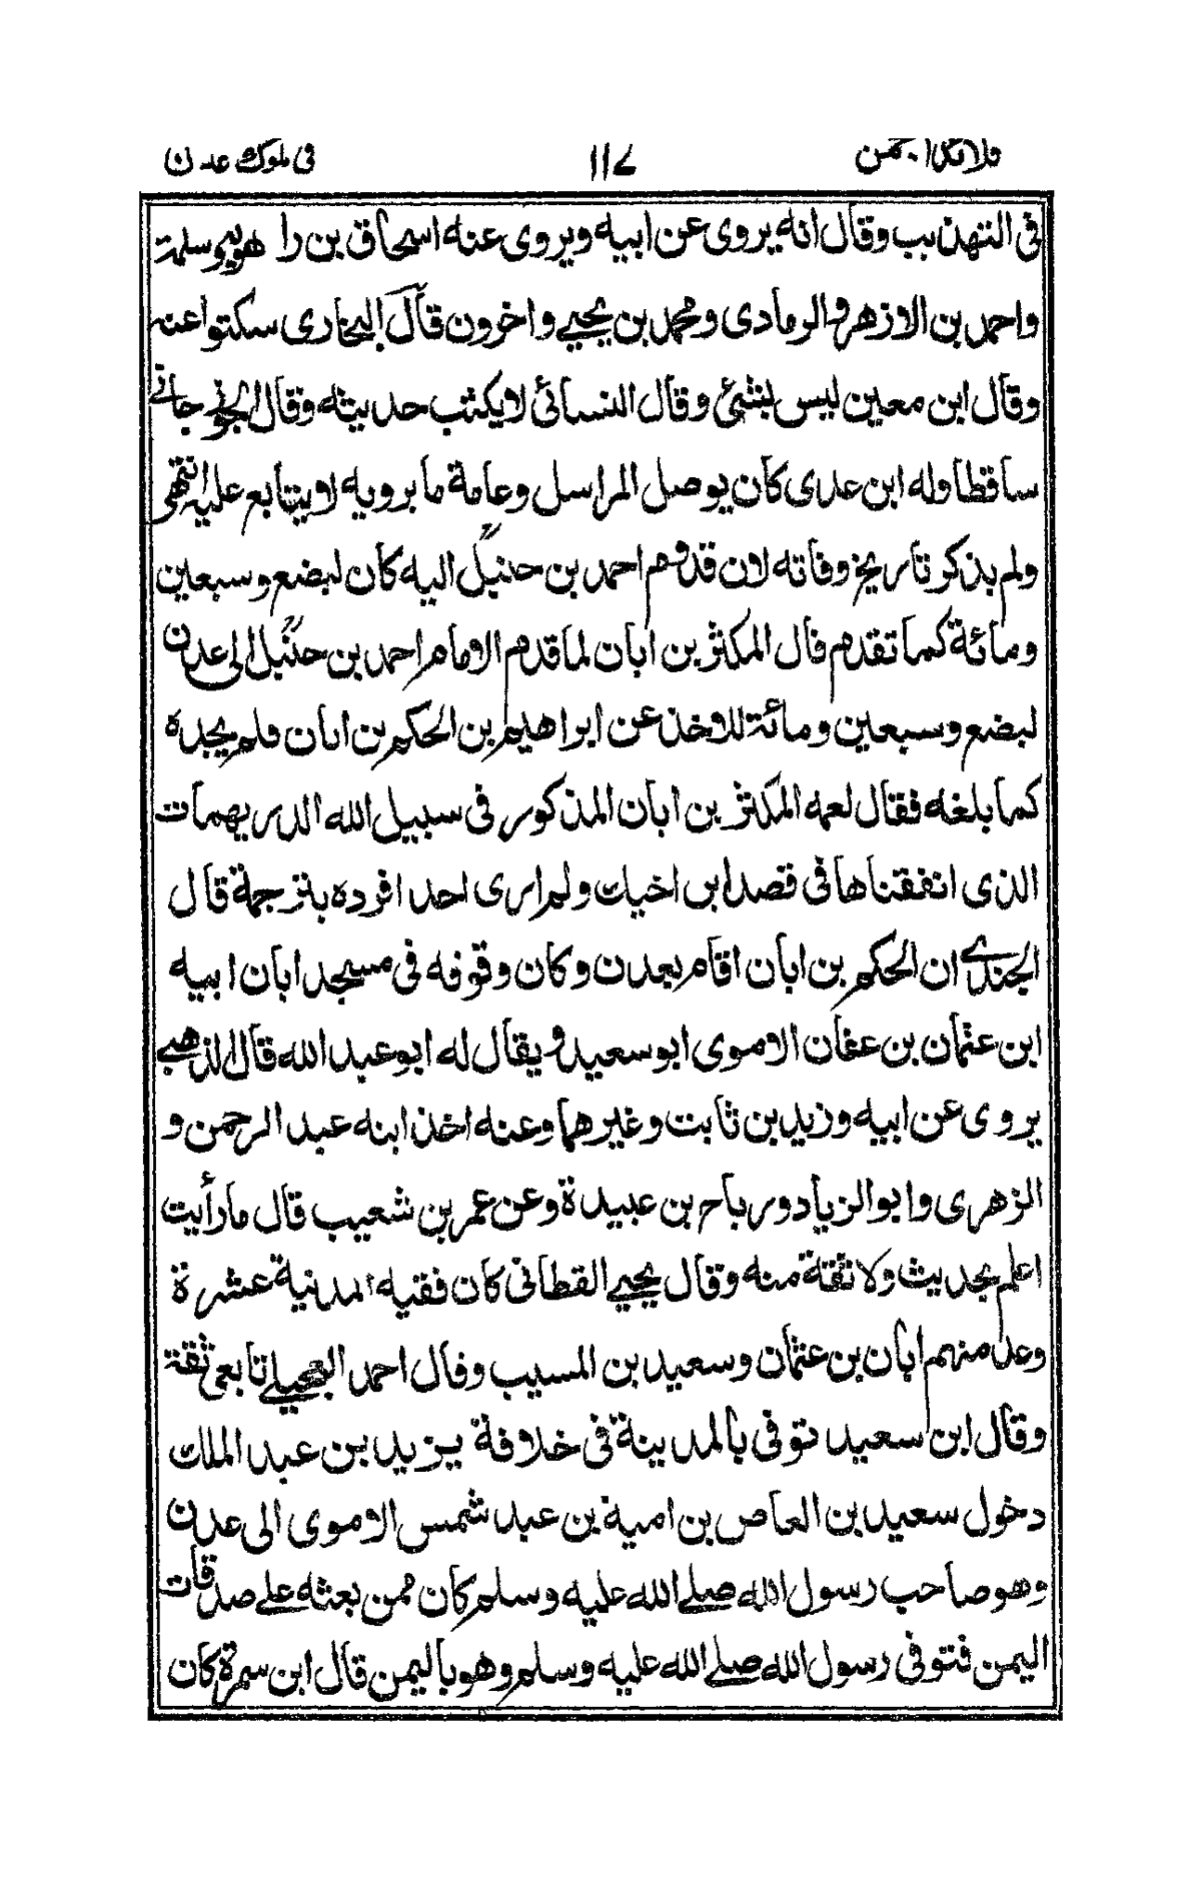 قلائد الجمن ١١٧ فى ملوك عدن
فى التهذيب وقال انه يروى عن ابيه ويروى عنه اسحاق بن راهويه وسلمة
واحمد بن الازهر والرمادى ومحمد بن يحيى واخرون قال البخارى سكتوا عنه
وقال ابن معين ليس لبشئ وقال النسائى لا يكتب حديثه وقال الجوزجانى
ساقطا وله ابن عدى كان يوصل المراسل وعامة ما يرويه لا يتابع عليه انتهى
ولم يذكر تاريخ وفاته لان قدوم احمد بن حنبل اليه كان لبضع وسبعين
ومائة كما تقدم قال المكثر بن ابان لما قدم الامام احمد بن حنبل الى عدن
لبضع وسبعين ومائة للاخذ عن ابراهيم بن الحكم بن ابان فلم يجده
كما بلغه فقال لعمه المكثر بن ابان المذكور فى سبيل الله الدريهمات
الذى انفقناها فى قصد ابن اخيك ولم ارى احدا افرده بترجمة قال
الجندى ان الحكم بن ابان اقام بعدن وكان وقوفه فى مسجد ابان ابيه
ابن عثمان بن عفان الاموى ابو سعيد ويقال له ابو عبد الله قال الذهبى
يروى عن ابيه وزيد بن ثابت وغيرهما وعنه اخذ ابنه عبد الرحمن و
الزهرى وابو الزياد ورباح بن عبيدة وعن عمر بن شعيب قال ما رأيت
اعلم بحديث ولا ثقة منه وقال يحيى القطانى كان فقيه المدنية عشرة
وعد منهم ابان بن عثمان وسعيد بن المسيب وقال احمد العجيلى تابعى ثقة
وقال ابن سعيد توفى بالمدينة فى خلافة يزيد بن عبد الملك
دخول سعيد بن العاص بن امية بن عبد شمس الاموى الى عدن
وهو صاحب رسول الله صلى الله عليه وسلم كان ممن بعثه على صدقات
اليمن فتوفى رسول الله صلى الله عليه وسلم وهو باليمن قال ابن سمرة كان